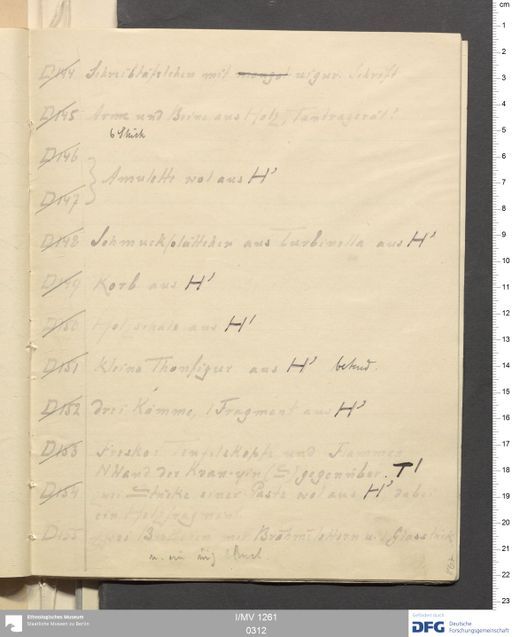 D144 Schreibtäfelchen mit mongol uigur. Schrift
D145 Arme und Beine aus Holz, Tantragerät!
6 Stück
D146
Amulette wol aus H'
D147
D148 Schmuckplättchen aus Turbinella aus H'
D149 Korb aus H'
D150 Holzschale aus H'
D151 Kleine Thonfigur aus H'
D152 drei Kämme, 1 Fragment aus H'
D153 Fresko: Teufelsköpfe und Flammen
N Wand der Kvan-yin gegenüber. T'
D154 zwei Stücke einer Paste wol aus H' dabei
ein Holzfragment.
D155 zwei Brettchen mit Brâhmîlettern u. 1 Glasstück
cm
1
2
3
4
5
6
7
8
9
10
11
12
13
14
15
16
17
18
19
20
21
22
23
Ethnologisches Museum
Staatliche Museen zu Berlin
I/MV 1261
0312
Gefördert durch
DFG Deutsche
Forschungsgemeinschaft